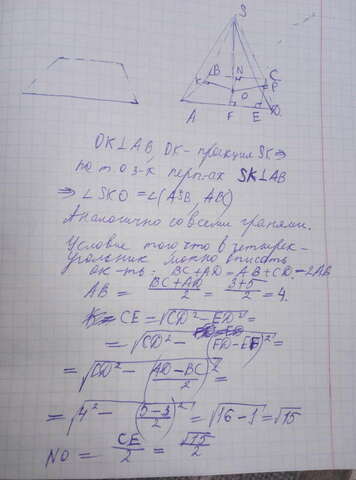 S
B N C
K P
O
A F E D
OK⊥AB, OK- проекция SK ⇒
по т. о 3-х перп-ах SK⊥AB
⇒ ∠SKO = ∠(ASB, ABC)
Аналогично со всеми гранями.
Условие того что в четырех-
угольник можно вписать
ок-ть: BC+AD = AB+CD = 2AB
AB = (BC+AD)/2 = (3+5)/2 = 4.
CE = √(CD² - ED²) =
= √(CD² - (FD-EF)²) =
= √(CD² - ((AD-BC)/2)²) =
= √(4² - ((5-3)/2)²) = √(16-1) = √15
NO = CE/2 = √15/2